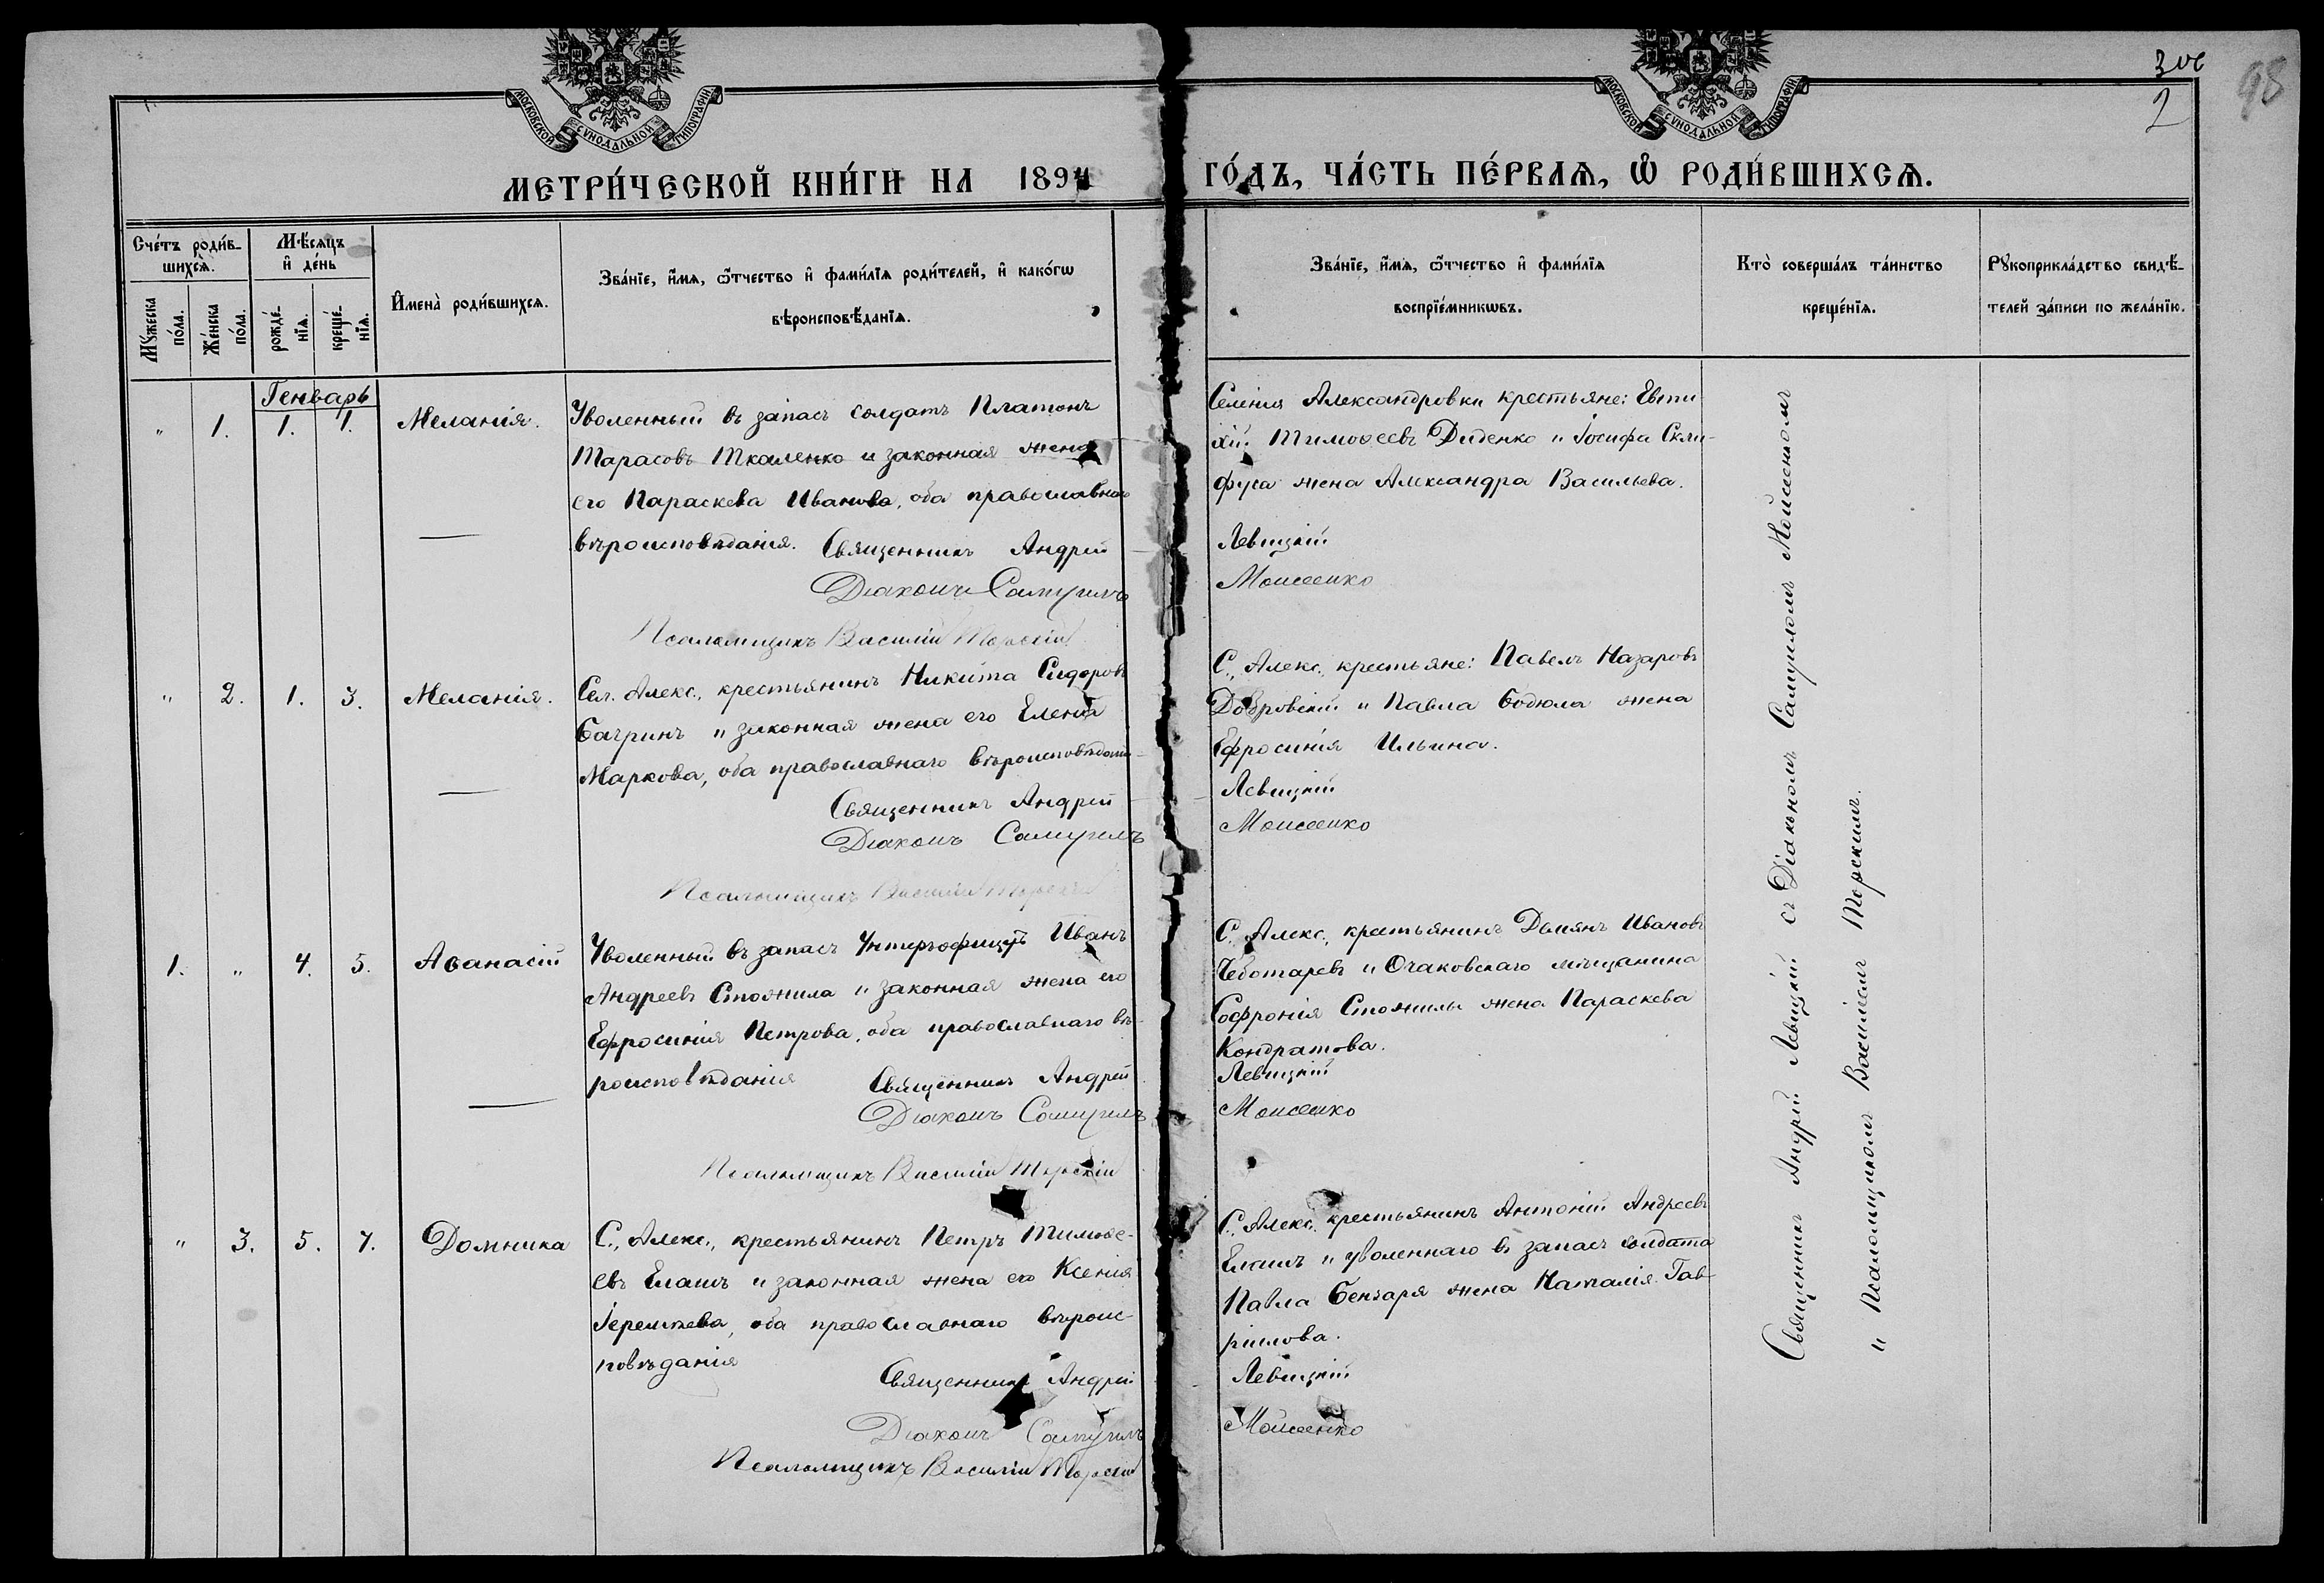 МОСКОВСКОЙ СУНОДАЛЬНОЙ ТИПОГРАФІИ
МОСКОВСКОЙ СУНОДАЛЬНОЙ ТИПОГРАФІИ
98
2
МЕТРИ́ЧЕСКОЙ КНИ́ГИ НА 1894 ГО́ДЪ, ЧА́СТЬ ПЕ́РВАѦ, Ѡ РОДИ́ВШИХСѦ.
Сче́тъ роди́в-
шихсѧ.
Мꙋ́жеска по́ла.
Же́нска по́ла.
Мѣ́сѧцъ
и де́нь
рожде́-нїѧ.
креще́-нїѧ.
Имена̀ роди́вшихсѧ.
Зва́нїе, и́мѧ, ѻ́тчество и фами́лїѧ роди́телей, и како́гѡ
вѣроисповѣ́данїѧ.
Зва́нїе, и́мѧ, ѻ́тчество и фами́лїѧ
воспрїе́мникѡвъ.
Кто̀ соверша́лъ та́инство
креще́нїѧ.
Рꙋкоприкла́дство свидѣ́-
телей за́писи по жела́нїю.
Генварь
" 1. 1. 1. Меланія.
Уволенный въ запасъ солдатъ Платонъ
Тарасовъ Ткаленко и законная жена
его Параскева Иванова, оба православнаго
вѣроисповѣданія. Священникъ Андрей
Діаконъ Самуилъ
Псаломщикъ Василій Торскій
Селенія Александровки крестьяне: Евти-
хій Тимоѳеевъ Диденко и Іосифа Скли-
фуса жена Александра Васильева.
Левицкій
Моисеенко
" 2. 1. 3. Меланія.
Сел. Алекс., крестьянинъ Никита Сидоровъ
Багринъ и законная жена его Елена
Маркова, оба православнаго вѣроисповѣданія
Священникъ Андрей
Діаконъ Самуилъ
Псаломщикъ Василій Торскій
С., Алекс., крестьяне: Павелъ Назаровъ
Добровскій и Павла Бодюла жена
Ефросинія Ильина.
Левицкій
Моисеенко
1. " 4. 5. Аѳанасій
Уволенный въ запасъ Унтеръофицеръ Иванъ
Андреевъ Стожила и законная жена его
Ефросинія Петрова, оба православнаго вѣ-
роисповѣданія Священникъ Андрей
Діаконъ Самуилъ
Псаломщикъ Василій Торскій
С. Алекс., крестьянинъ Доміянъ Ивановъ
Чеботаревъ и Очаковскаго мѣщанина
Софронія Стожилы жена Параскева
Кондратова.
Левицкій
Моисеенко
" 3. 5. 7. Домника
С., Алекс., крестьянинъ Петръ Тимоѳе-
евъ Елашъ и законная жена его Ксенія
Іереміева, оба православнаго вѣроис-
повѣданія
Священникъ Андрей
Діаконъ Самуилъ
Псаломщикъ Василій Торскій
С., Алекс. крестьянинъ Антоній Андреевъ
Елашъ и уволеннаго въ запасъ солдата
Павла Бензаря жена Наталія Гав-
риилова.
Левицкій
Моисеенко
Священникъ Андрей Левицкій съ Діакономъ Самуиломъ Моисеенкомъ
и Псаломщикомъ Василіемъ Торскимъ.